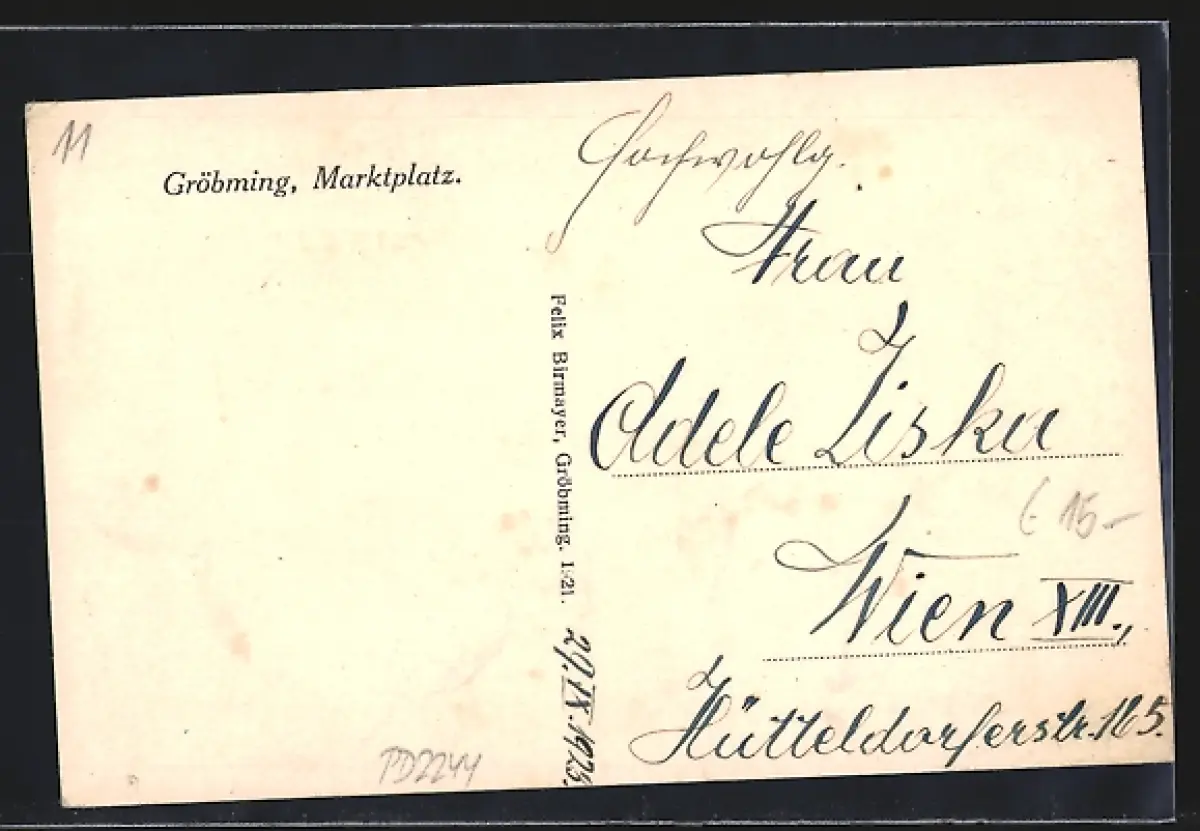 11
Gröbming, Marktplatz.
Felix Birmayer, Gröbming. 1921.
29. IX. 1923.
PD2244
Hochwohlg.
Frau
Adele Ziska
Wien XIII.,
Hütteldorferstr. 165.
€ 15-